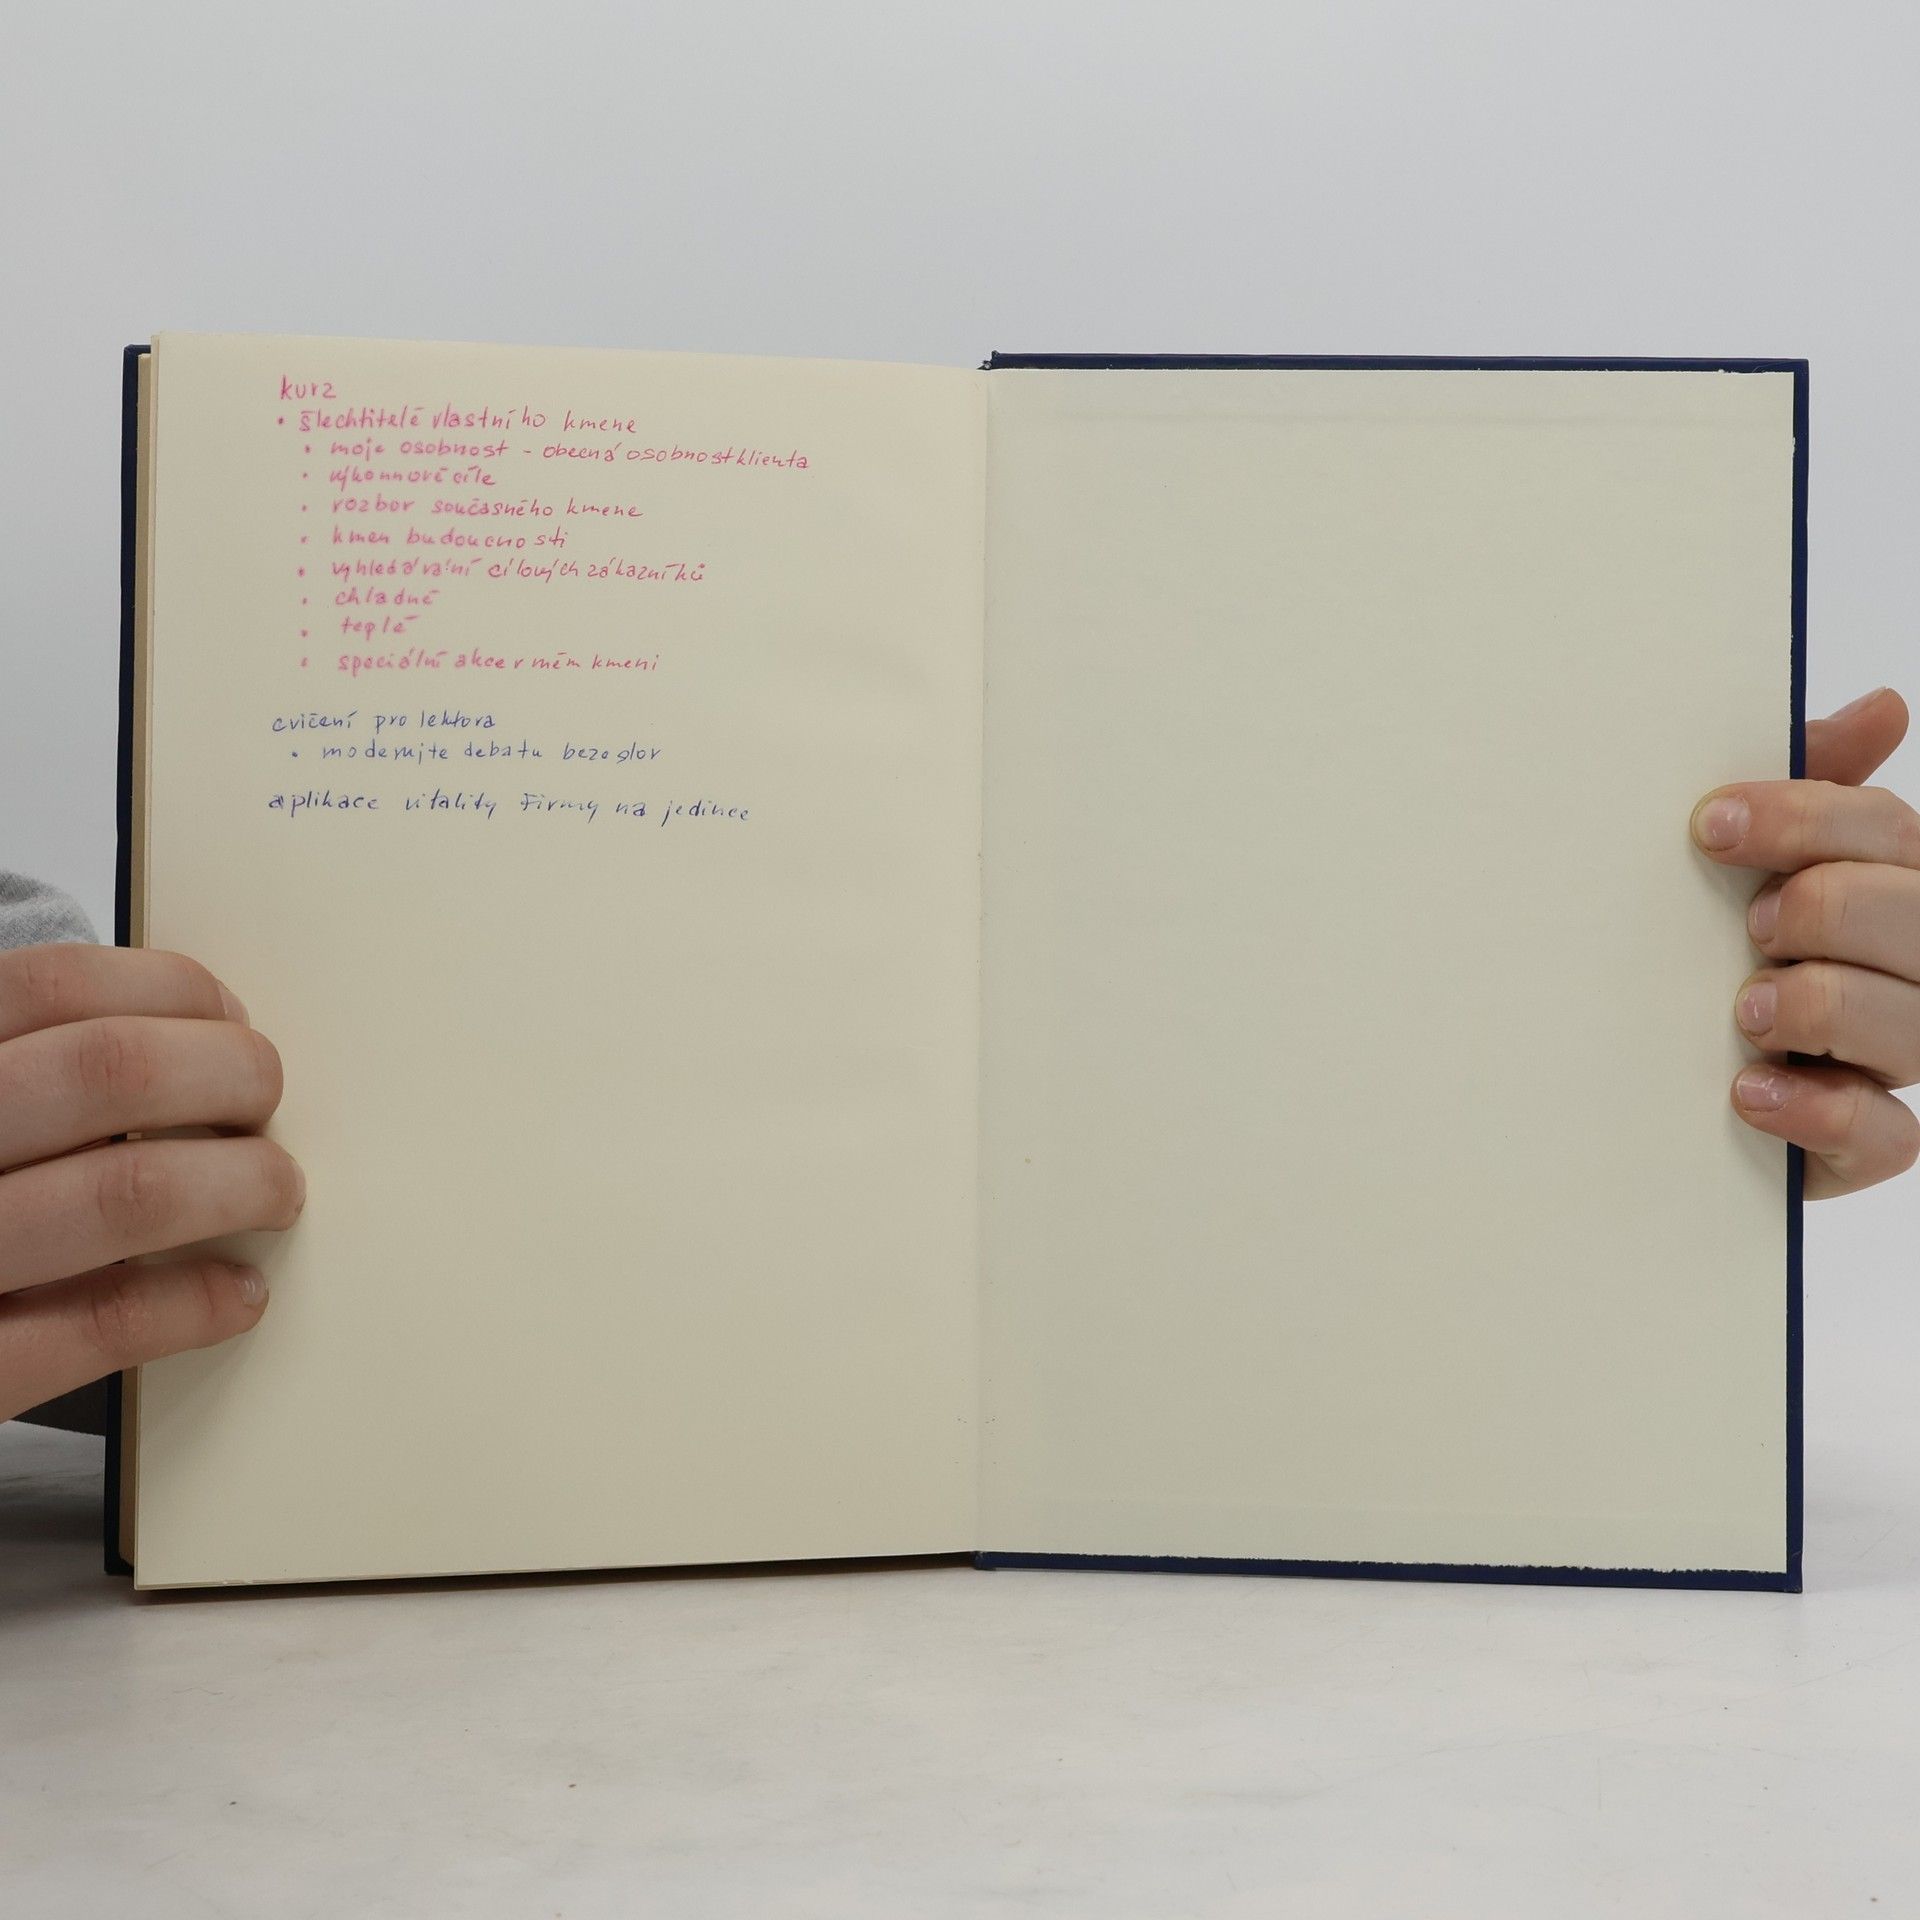 kurz
• šlechtitelé vlastního kmene
• moje osobnost - obecná osobnost klienta
• výkonnové cíle
• rozbor současného kmene
• kmen budoucnosti
• vyhledávání cílových zákazníků
• chladné
• teplé
• speciální akce v mém kmeni
cvičení pro lektora
• moderujte debatu beze slov
aplikace vitality Firmy na jedince